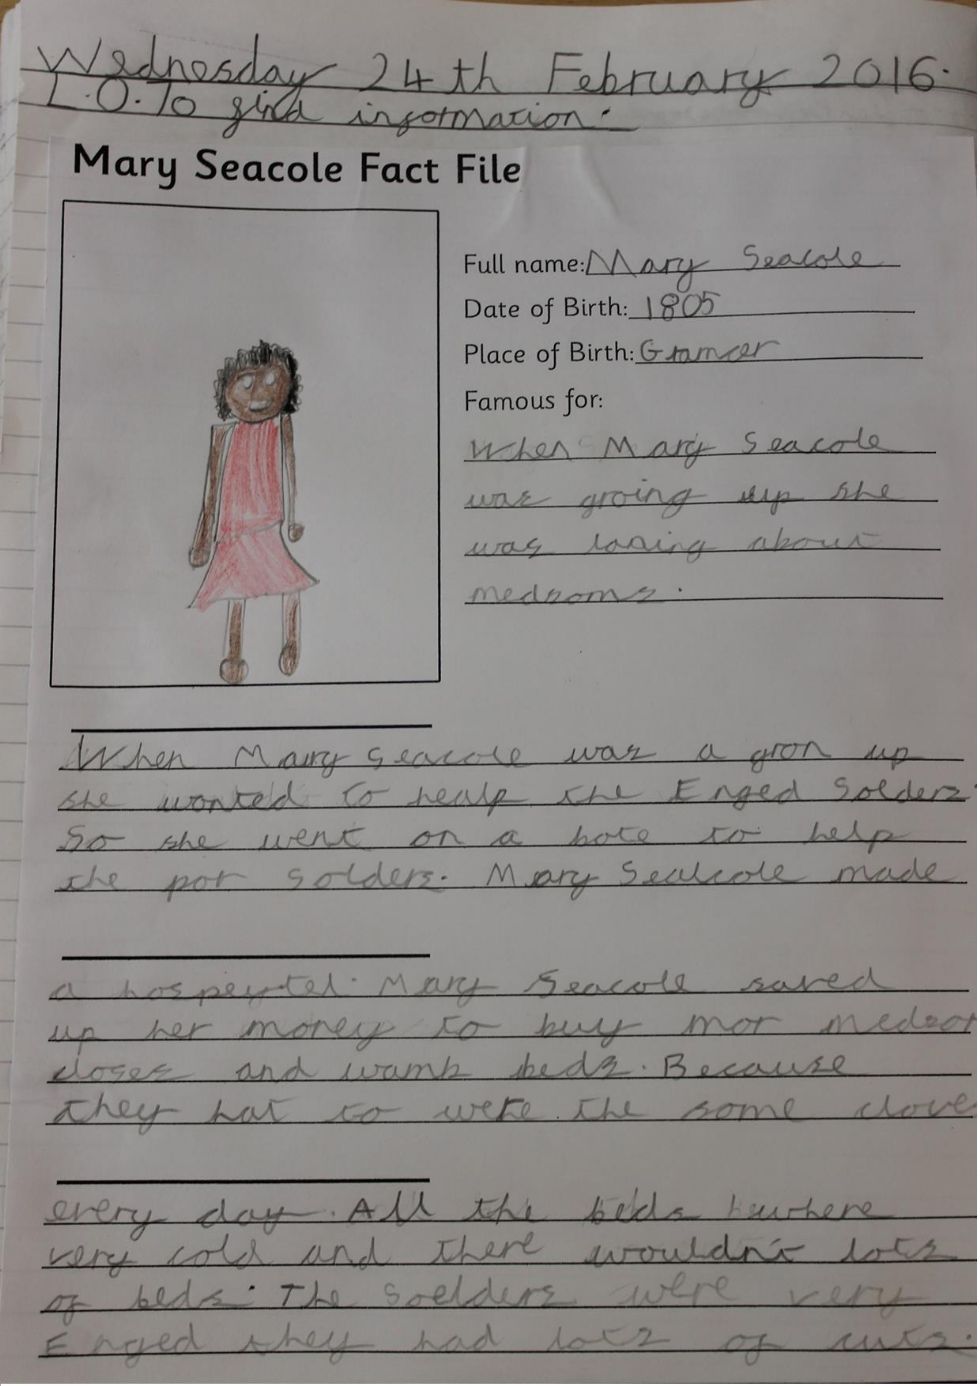 Wednesday 24th February 2016.
L.O. To find information.
Mary Seacole Fact File
Full name: Mary Seacole
Date of Birth: 1805
Place of Birth:
Famous for:
When Mary Seacole
was groing up she
was laning about
medsoms.
When Mary Seacole was a gron up
she wonted to healp the Enged Solders
So she went on a bote to help
the por Solders. Mary Sealcole made
a hospeytel. Mary Seacole saved
up her money to buy mor medsor
closes and wamb beds. Because
they hat to were the some clove
every day. All the beds where
very cold and there wouldn't lots
of beds. The Soelders were very
Enged they had lots of cuts.